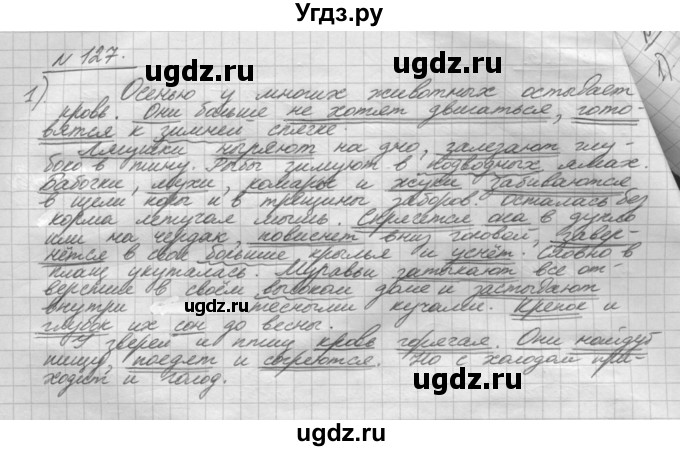 Угдз.ру
N 127.
1) Осенью у многих животных остывает
кровь. Они больше не хотят двигаться, гото-
вятся к зимней спячке.
Лягушки ныряют на дно, залезают глу-
боко в тину. Рыбы зимуют в подводных ямах.
Бабочки, мухи, комары и жуки забиваются
в щели коры и в трещины заборов. Осталась без
корма летучая мышь. Спрячется она в дупло
или на чердак, повиснет вниз головой, завер-
нётся в свои большие крылья и уснёт. Словно в
плащ укуталась. Муравьи затыкают все от-
верстия в своём высоком доме и застывают
внутри тесными кучами. Крепок и
глубок их сон до весны.
У зверей и птиц кровь горячая. Они найдут
пищу, поедят и согреются. Но с холодом при-
ходит и голод.
ugdz.ru
ugdz.ru
ugdz.ru
ugdz.ru
ugdz.ru
ugdz.ru
ugdz.ru
ugdz.ru